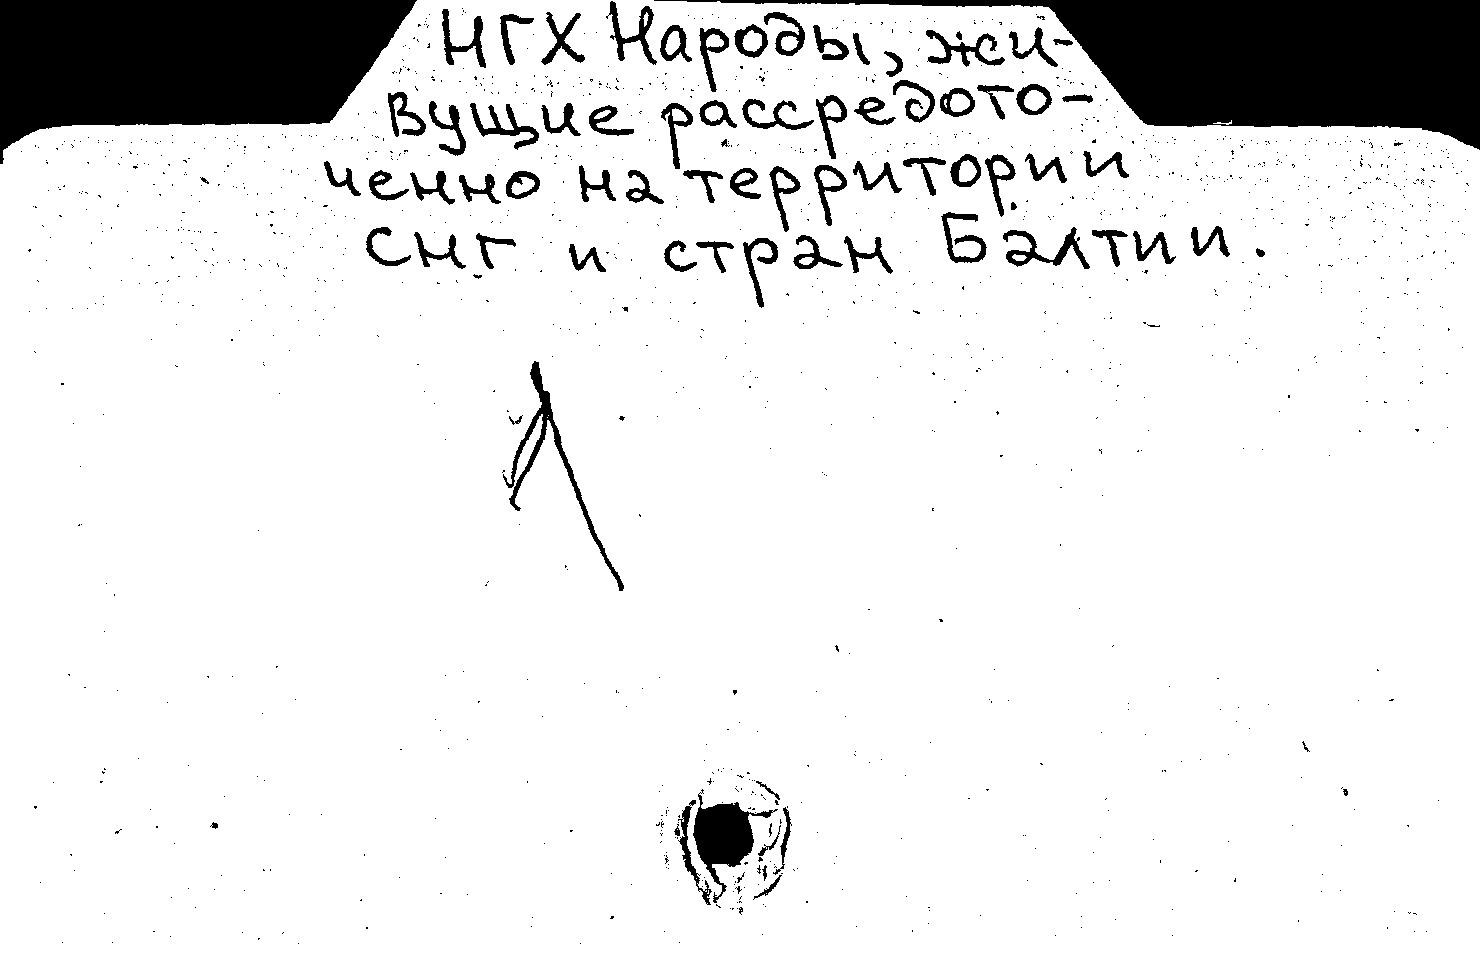 НГХ Народы, жи-
вущие рассредото-
ченно на территории
СНГ и стран Балтии.